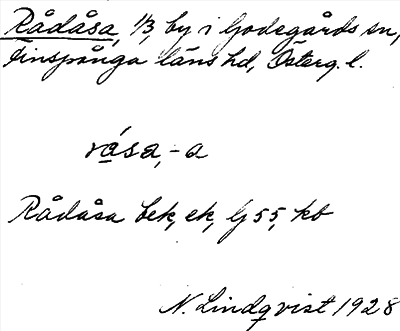 Rådåsa, 1/3, by i Godegårds sn,
Finspånga läns hd, Österg. l.
råsa, -a
Rådåsa bek, ek, lj 55, kb
N. Lindqvist 1928